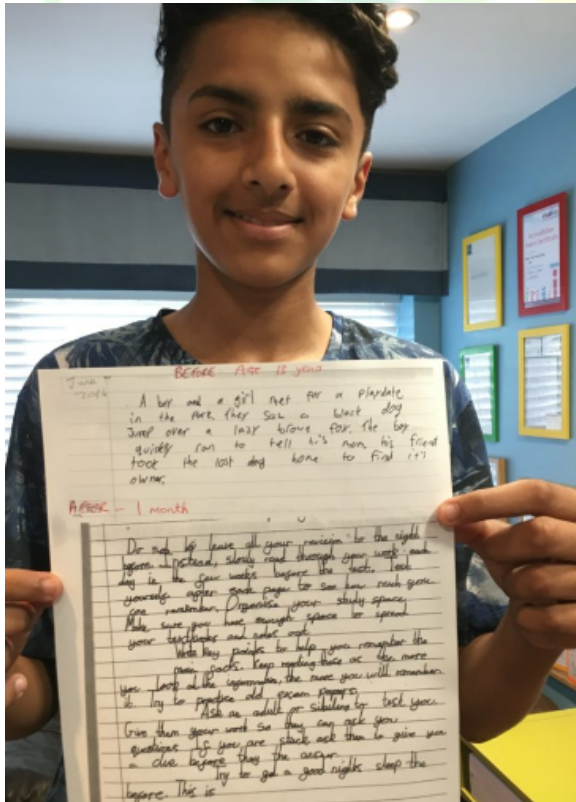 June
2016
BEFORE - AGE 13 years
A boy and a girl met for a playdate
in the park, they saw a black dog
jump over a lazy brown fox. The boy
quickly ran to tell his mom, his friend
took the lost dog home to find it's
owner.
AFTER - 1 month
Do not leave all your revision to the night
before. Instead, slowly read through your work each
day in the few weeks before the test. Test
yourself after each page to see how much you
can remember. Organise your study space.
Make sure you have enough space to spread
your textbooks and notes out.
Write key points to help you remember the
main facts. Keep reading these as the more
you look at the information, the more you will remember
it. Try to practise old exam papers.
Ask an adult or sibling to test you.
Give them your work so they can ask you
questions. If you are stuck ask them to give you
a clue before they the answer.
Try to get a good nights sleep the
before. This is